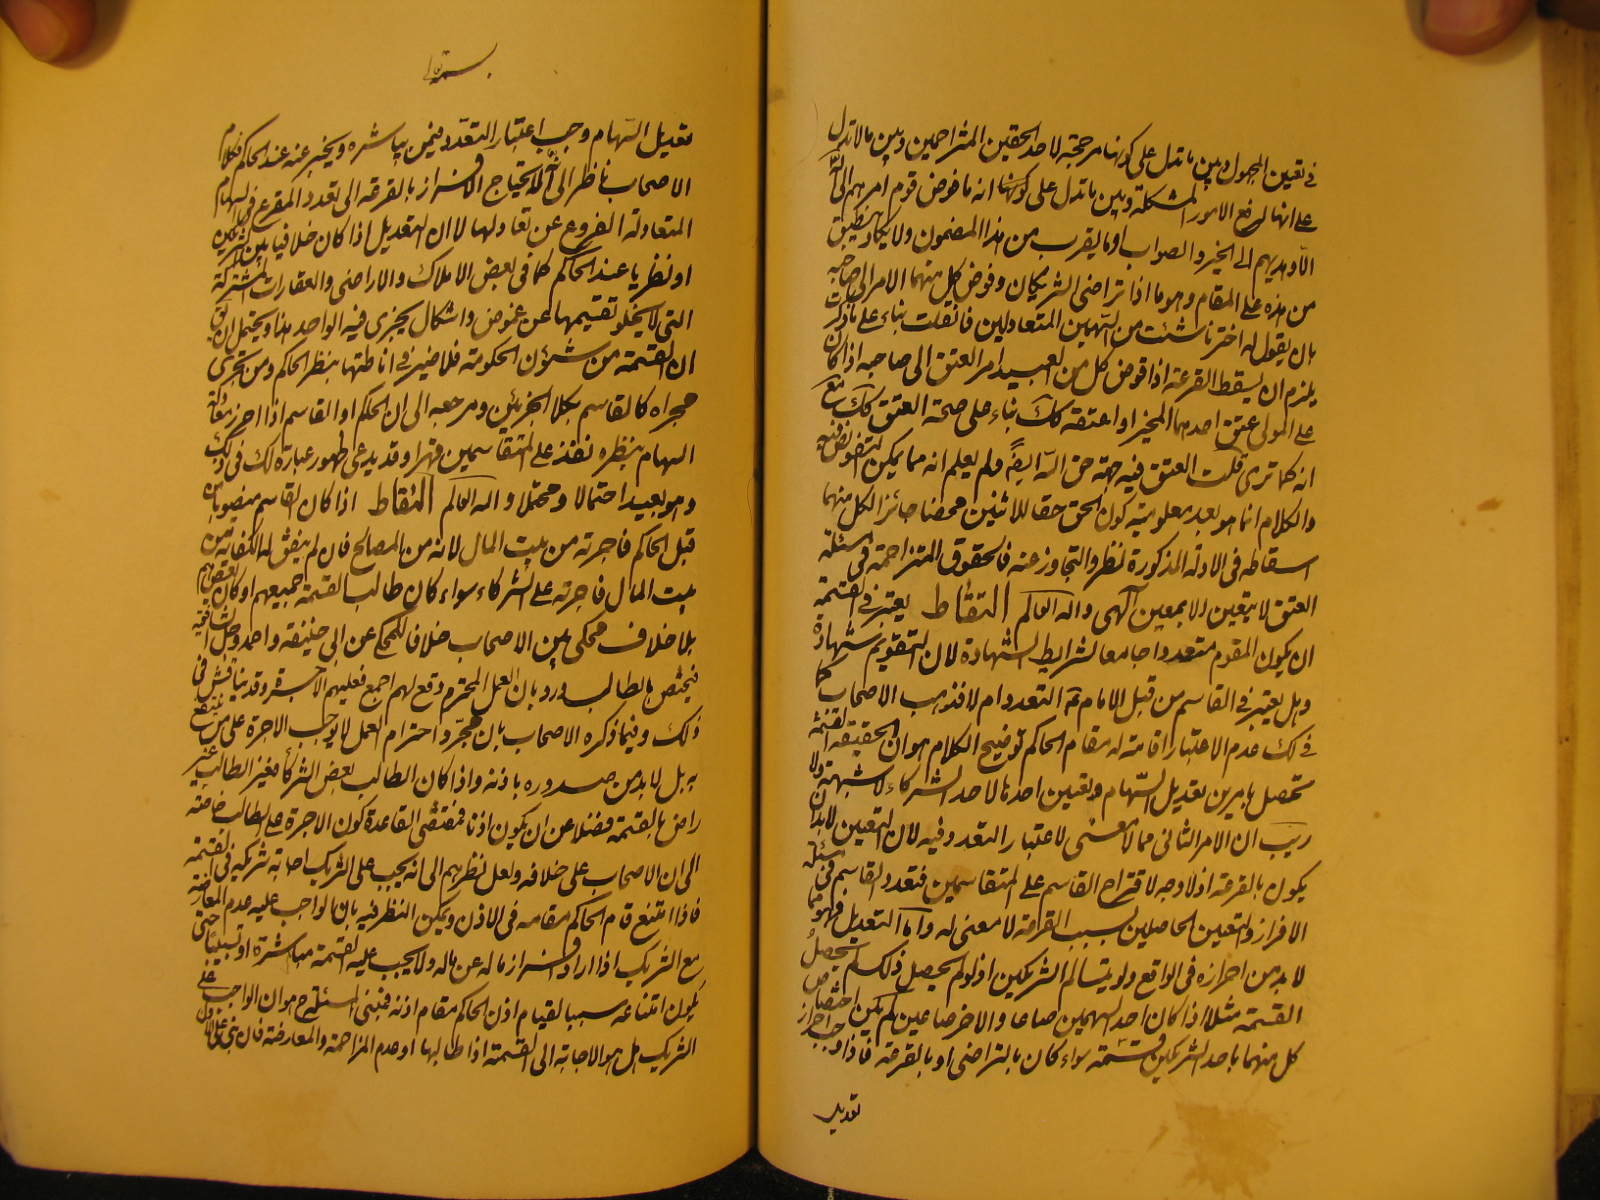 في تعيين المجهول وبين ما تدل على كونها مرجحة لاحد الحقين المتزاحمين وبين ما لا تدل
على انها لرفع الامور المشكلة وبين ما تدل على كونها انه ما فوض قوم امرهم الى الله
الا وهديهم الى الخير والصواب او ما يقرب من هذا المضمون ولا يكاد ينطبق
من هذه على المقام وهو ما اذا تراضى الشريكان وفوض كل منهما الامر الى صاحبه
بان يقول له اختر ما شئت من السهمين المتعادلين فان قلت بناء على ما ذكرت
يلزم ان يسقط القرعة اذا فوض كل من العبيد امر العتق الى صاحبه اذا كان
على المولى عتق احدهما المخير او اعتقه كك بناء على صحة العتق كك مع
انه كما ترى قلت العتق فيه جهة حق الله ايضا ولم يعلم انه مما يمكن التفويض فيه
والكلام انما هو بعد معلومية كون الحق حقا للاثنين محضا جائزا لكل منهما
اسقاطه في الادلة المذكورة نظر والتجاوز عنه فالحقوق المتزاحمة في مسئلة
العتق لا يتعين الا بمعين الهى والله العالم التقاط يعتبر في القسمة
ان يكون المقوم متعددا جامعا لشرايط الشهادة لان التقويم شهادة
وهل يعتبر في القاسم من قبل الامام التعدد ام لا فذهب الاصحاب
في لك عدم الاعتبار اقامة له مقام الحاكم توضيح الكلام هو ان الحقيقة القسمة
تتحصل بامرين تعديل السهام وتعيين احدها لاحد الشركاء لا شبهة ولا
ريب ان الامر الثانى مما لا معنى لاعتبار التعدد فيه لان التعيين لا بد ان
يكون بالقرعة اذ لا وجه لاقتراح القاسم على المتقاسمين فتعدد القاسم في مسئلة
الافراز والتعيين الحاصلين بسبب القرعة لا معنى له واما التعديل فهو مما
لا بد من احرازه في الواقع ولو بتسالم الشريكين اذ لو لم يحصل ذلك لم تحصل
القسمة مثلا اذا كان احد السهمين صاعا والاخر صاعين لم يكن اختصاص
كل منهما باحد الشريكين قسمة سواء كان بالتراضى او بالقرعة فاذا وجب احراز
تعديل
بسمه تعالى
تعديل السهام وجب اعتبار التعدد فيمن يباشره ويخبر عنه عند الحاكم فكلام
الاصحاب ناظر الى انه لا يحتاج الافراز بالقرعة الى تعدد المقرع في السهام
المتعادلة الفروع عن تعادلها لا ان التعديل اذا كان خلافيا بين الشريكين
او نظريا عند الحاكم كما في بعض الاملاك والاراضى والعقارات المشتركة
التى لا يخلو تقسيمها عن غموض واشكال يجزى فيه الواحد هذا ويحتمل ان يكون
ان القسمة من شؤن الحكومة فلا ضير في اناطتها بنظر الحاكم ومن يجرى
مجراه كالقاسم بكلا الجزئين ومرجعه الى ان الحكم او القاسم اذا احرز معادلة
السهام بنظره نفذ على المتقاسمين قهرا وقد يدعى ظهور عبارة لك في ذلك
وهو بعيد احتمالا ومحتملا والله العالم التقاط اذا كان القاسم منصوبا من
قبل الحاكم فاجرته من بيت المال لانه من المصالح فان لم ينفق له الكفاية من
بيت المال فاجرته على الشركاء سواء كان طالب القسمة جميعهم او كان بعضهم
بلا خلاف محكى بين الاصحاب خلافا للمحكى عن ابى حنيفة واحد وجهى الشافعية
فيختص بالطالب ورد بان العمل المحترم وقع لهم اجمع فعليهم الاجرة وقد يناقش في
ذلك وفيما ذكره الاصحاب بان مجرد احترام العمل لا يوجب الاجرة على من ينتفع
به بل لا بد من صدوره باذنه واذا كان الطالب بعض الشركاء فغير الطالب غير
راض بالقسمة فضلا عن ان يكون اذنا فمقتضى القاعدة كون الاجرة على الطالب خاصة
الا ان الاصحاب على خلافه ولعل نظرهم الى انه يجب على الشريك اجابة شريكه في القسمة
فاذا امتنع قام الحاكم مقامه في الاذن ويمكن النظر فيه بان الواجب عليه عدم المعارضة
مع الشريك اذا اراد افراز ماله عن ماله ولا يجب عليه القسمة مباشرة او تسبيبا حتى
يكون امتناعه سببا لقيام اذن الحاكم مقام اذنه فمبنى المسئلة ح هو ان الواجب على
الشريك هل هو الاجابة الى القسمة اذا طالبها او عدم المزاحمة والمعارضة فان بنى على الاول